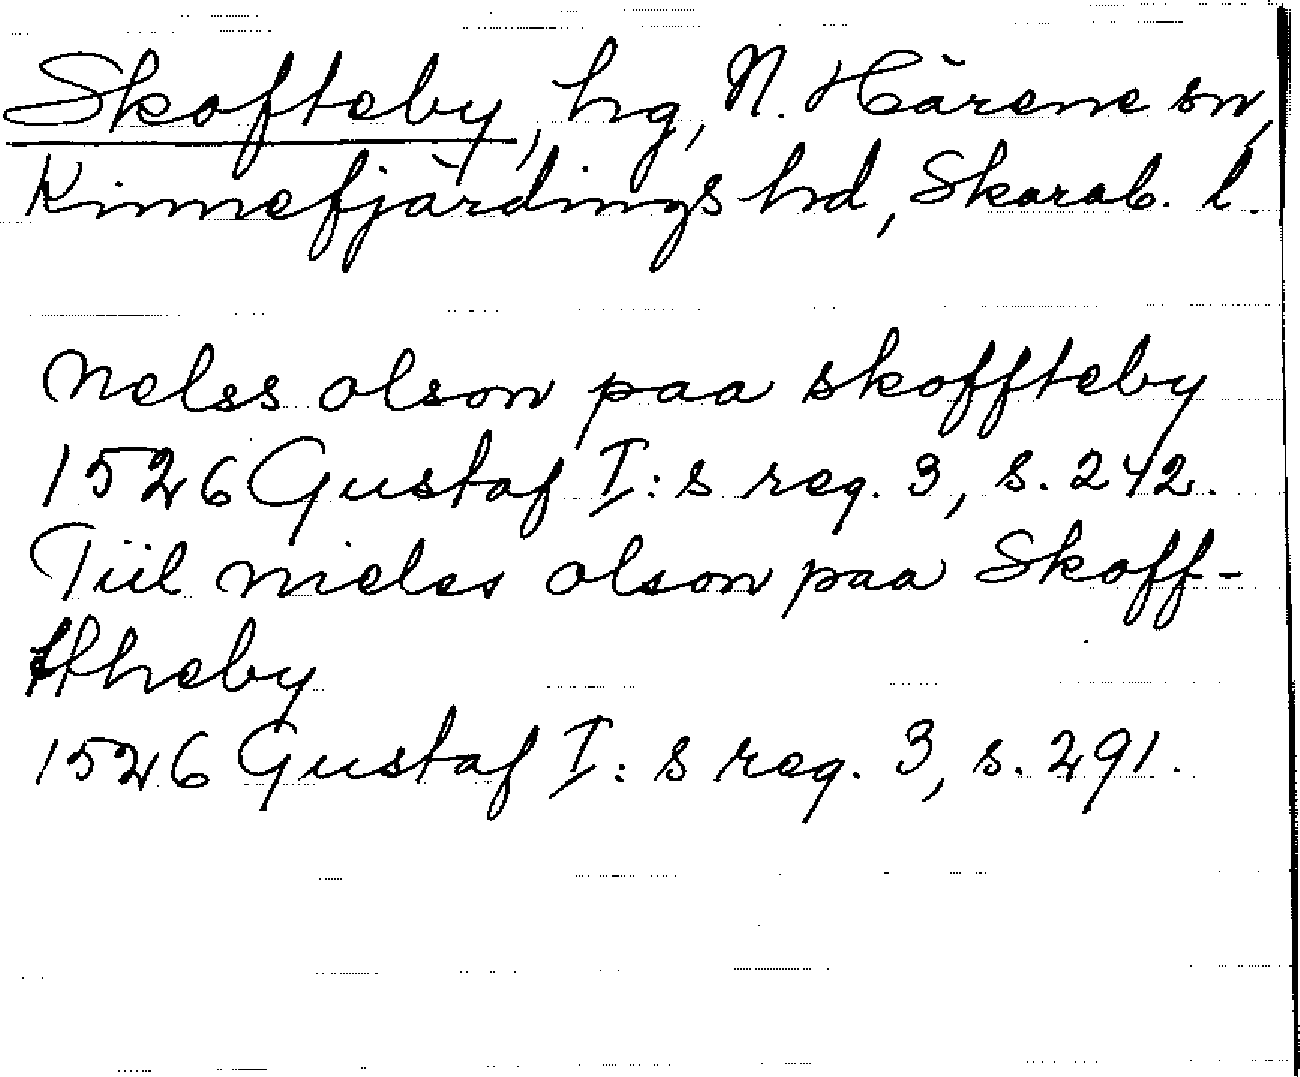 Skofteby, hg, N. Härene sn,
Kinnefjärdings hd, Skarab. l.
Nelss olson paa skoffteby
1526 Gustaf I:s reg. 3, s. 242.
Tiil nielss olson paa Skoff-
theby
1526 Gustaf I:s reg. 3, s. 291.